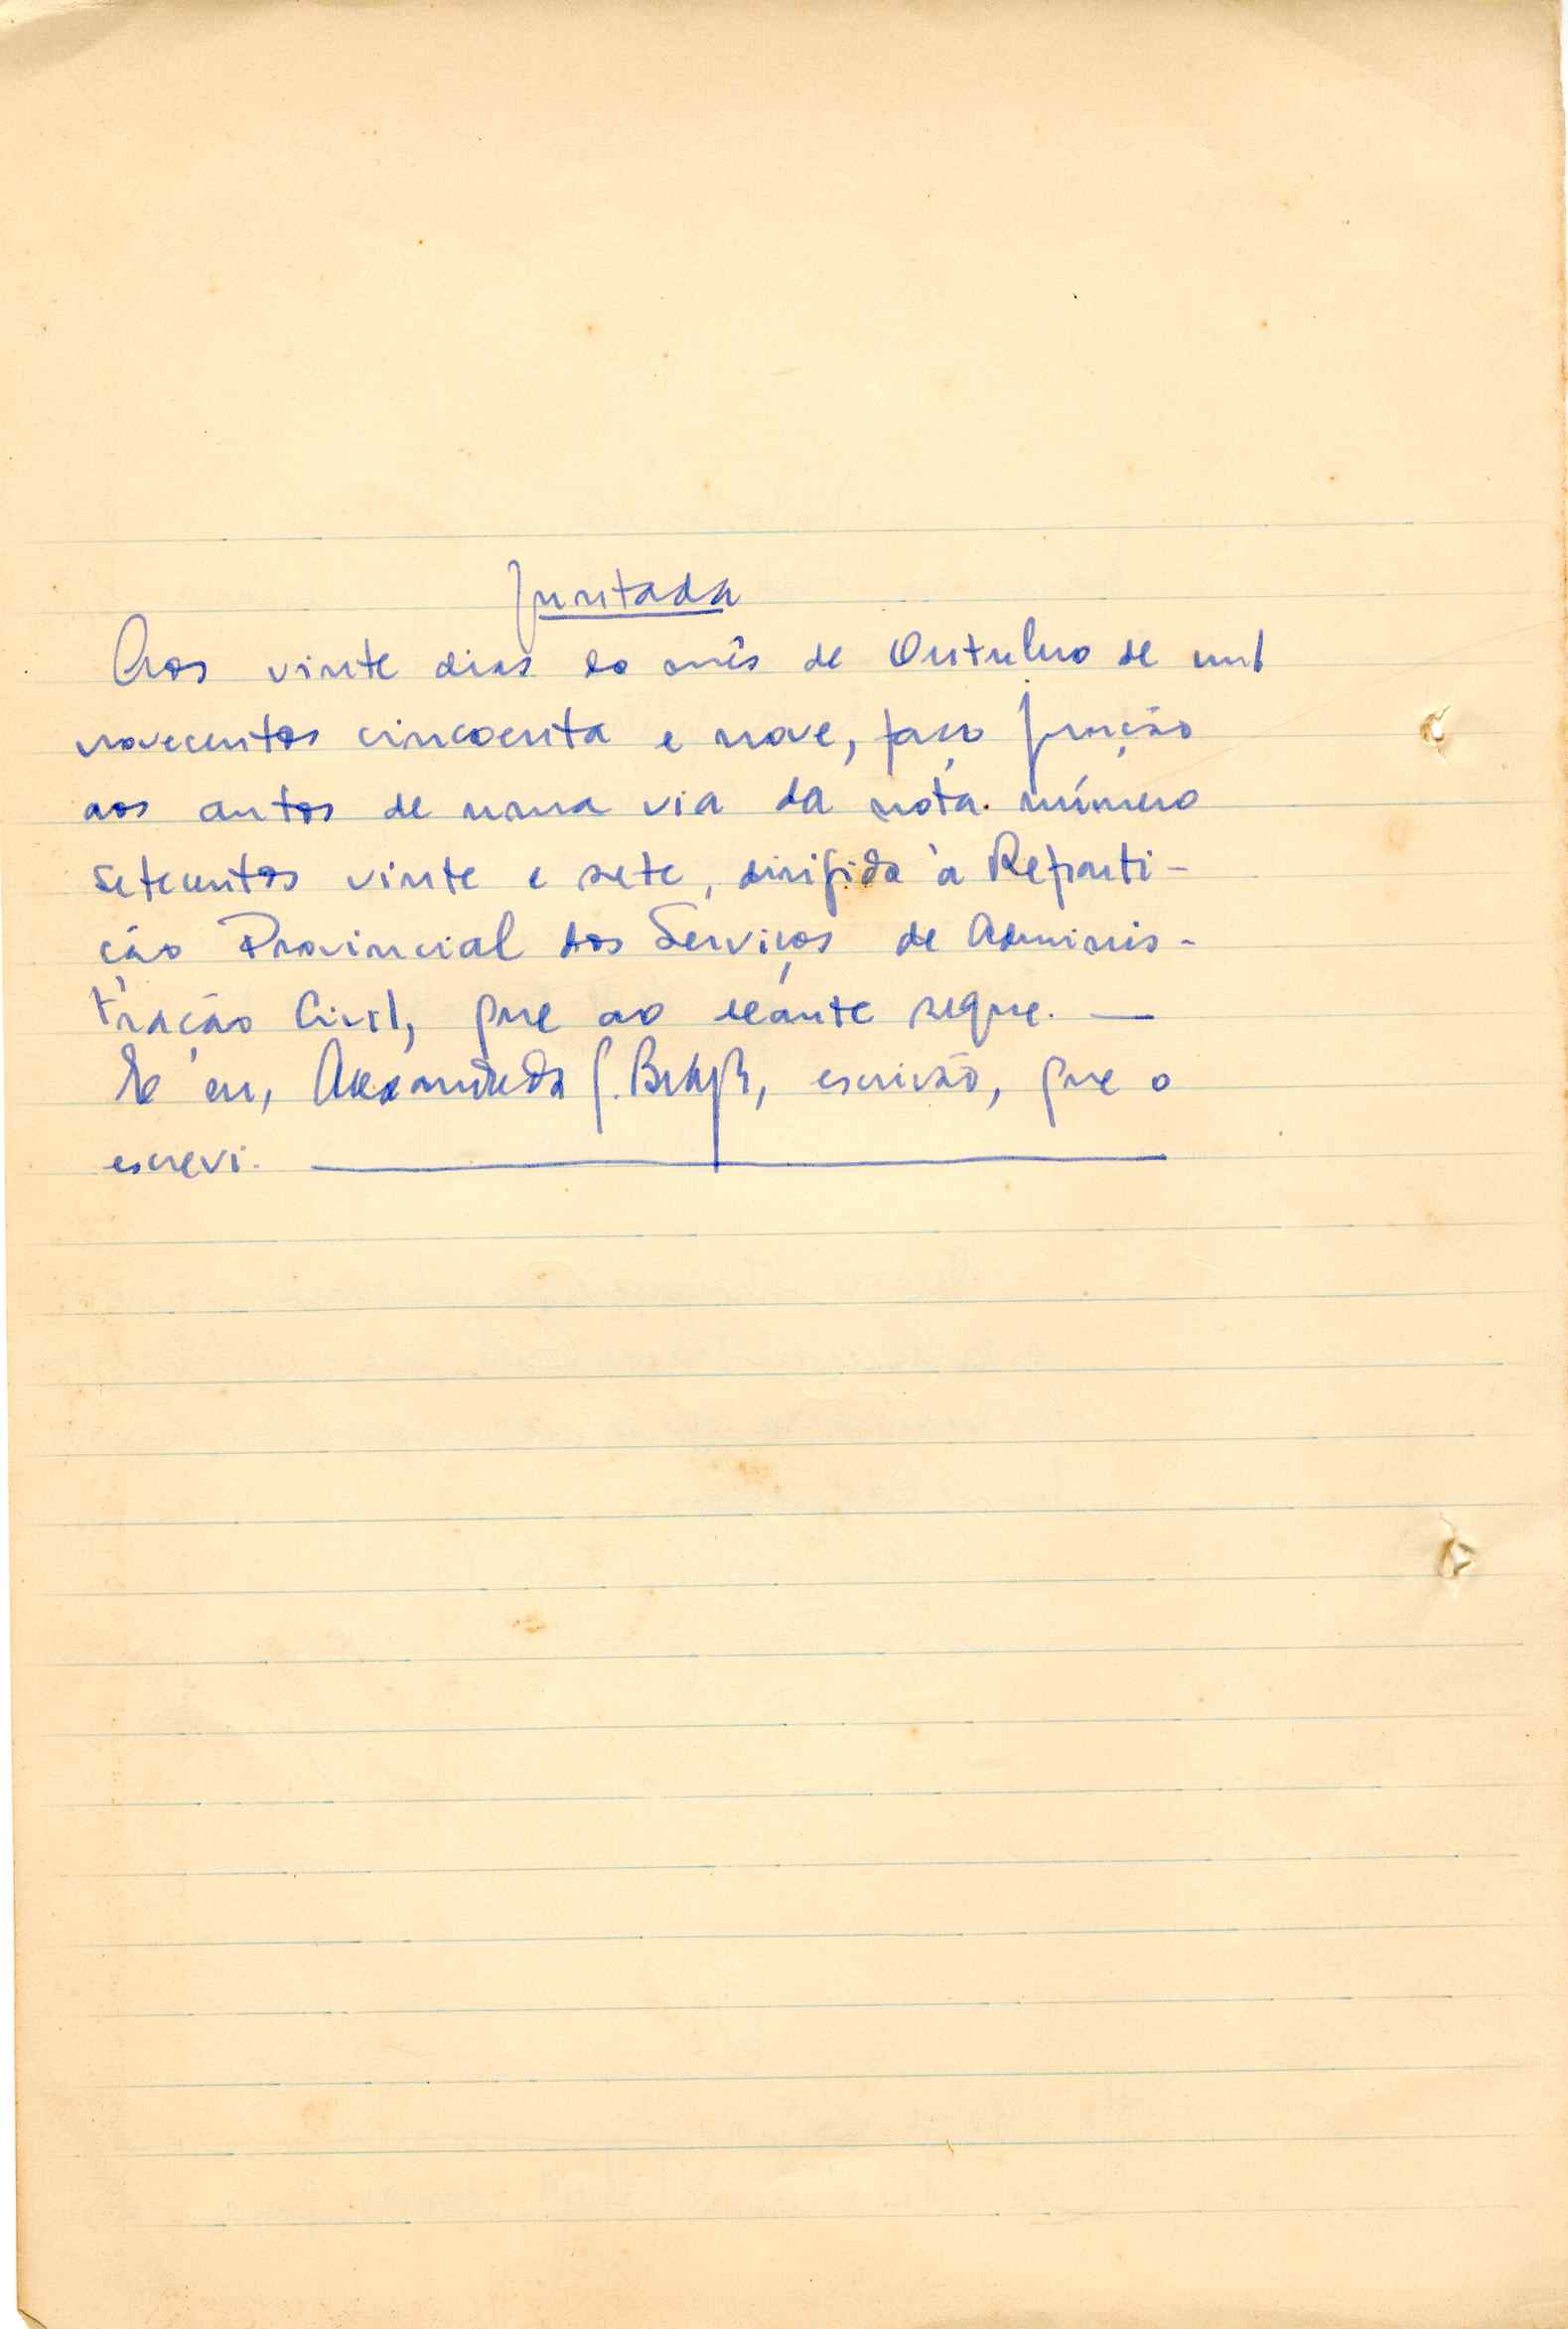 Juntada
Aos vinte dias do mês de Outubro de mil
novecentos cincoenta e nove, faço junção
aos autos de uma via da nota número
setecentos vinte e sete, dirigida à Reparti-
ção Provincial dos Serviços de Adminis-
tração Civil, que ao deante segue. —
E eu, escrivão, que o
escrevi.